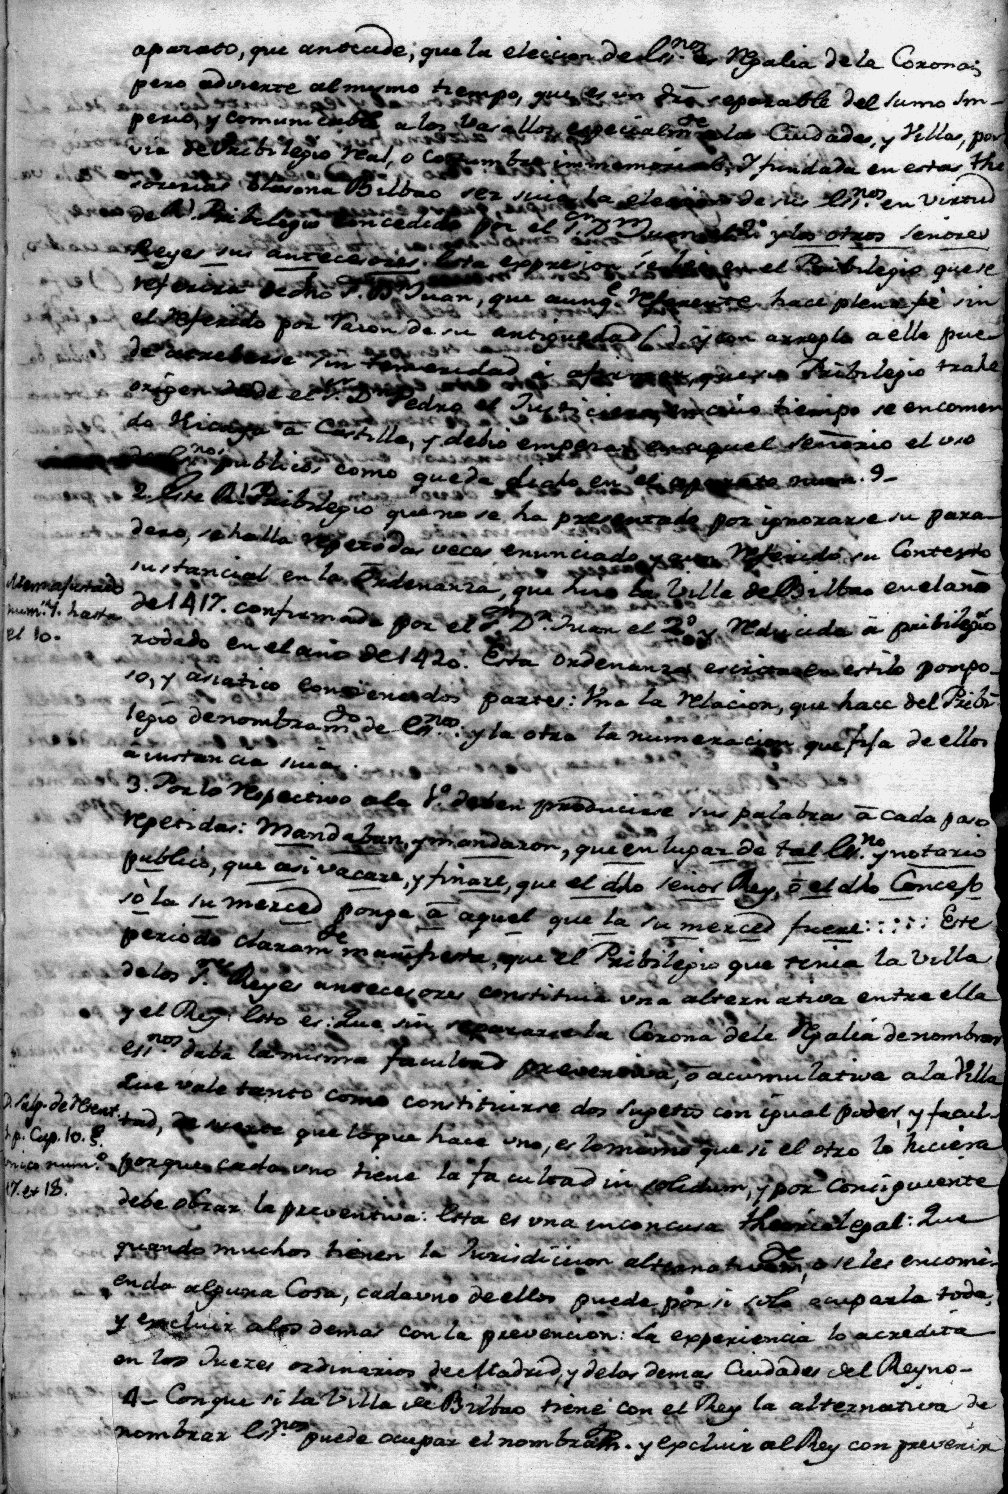 aparato, que antecede; que la eleccion de Ess.nos es Regalia de la Corona;
pero advierte al mismo tiempo, que es un dro separable del sumo Im-
perio, y comunicable a los Vasallos, especialm.te a las Ciudades, y Villas, por
via de Privilegio real, o costumbre immemorial. Y fundada en estas The
sorerias blasona Bilbao ser suia la eleccion de sus Ess.nos en virtud
de Rl. Pribilegio concedido por el S. Dn. Juan el 2.o y los otros señores
Reyes sus antecesores. Esta expresion se lee en el Pribilegio que se
refiere dicho S. Dn Juan, que aunq.e referente hace plena fé sin
el referido por razon de su antiguedad ( ) y con arreglo a ella pue-
de atreberse sin temeridad á afirmar, que su Pribilegio trahe
origen desde el S.r D.n Pedro el Justiciero, en cuio tiempo se encomen
do Vizcaya a Castilla, y debio empezar en aquel señorio el uso
de Ess.nos publicos como queda dicho en el aparato num. 9-
2. Este Rl. Pribilegio que no se ha presentado por ignorarse su para
dero, se halla repetidas veces enunciado, y aun referido su Contexto
sustancial en la Ordenanza, que hizo la Villa de Bilbao en el año
de 1417. confirmada por el S.r D.n Juan el 2.o y reducida á pribilegio
rodado en el año de 1420. Esta ordenanza escrita en estilo pompo-
so, y asiatico contiene dos partes: Una la relacion, que hace del Pribi
legio de nombram.to de Ess.nos: y la otra la numeracion que fixa de ellos
a instancia suia.
3. Por lo respectivo a la 1.a deben producirse sus palabras á cada paso
repetidas: Mandaban, y mandaron, que en lugar de tal Ess.no y notario
publico, que asi vacare, y finare, que el dho señor Rey, ó el dho Concejo
so la su merced ponga á aquel que la su merced fuere::::: Este
periodo claram.te manifiesta, que el Pribilegio que tenia la Villa
de los S.res Reyes antecesores constituia una alternativa entre ella
y el Rey: Esto es: Que sin separarse la Corona de la Regalia de nombrar
ess.nos daba la misma facultad preventiva, ó acumulativa a la Villa
Que vale tanto como constituirse dos sugetos con igual poder, y facul-
tad, de suerte que lo que hace uno, es lo mismo que si el otro lo hiciera
porque cada uno tiene la facultad in solidum, y por consiguiente
debe obrar la preventiva: Esta es una inconcusa theorica legal: Que
quando muchos tienen la Jurisdiccion alternativam.te, o se les encomi-
enda alguna Cosa, cada uno de ellos puede por si solo ocuparla toda,
y excluir a los demas con la prevencion: La experiencia lo acredita
en los Juezes ordinarios de Madrid, y de los demas Ciudades del Reyno-
4- Conque si la Villa de Bilbao tiene con el Rey la alternativa de
nombrar Ess.nos puede ocupar el nombram.to y excluir al Rey con prevenir
Mem ajustado
num.o 4. hasta
el 10.
D. Salg. de Retent.
1. p. Cap. 10. §.
unico num.o
17. et 18.